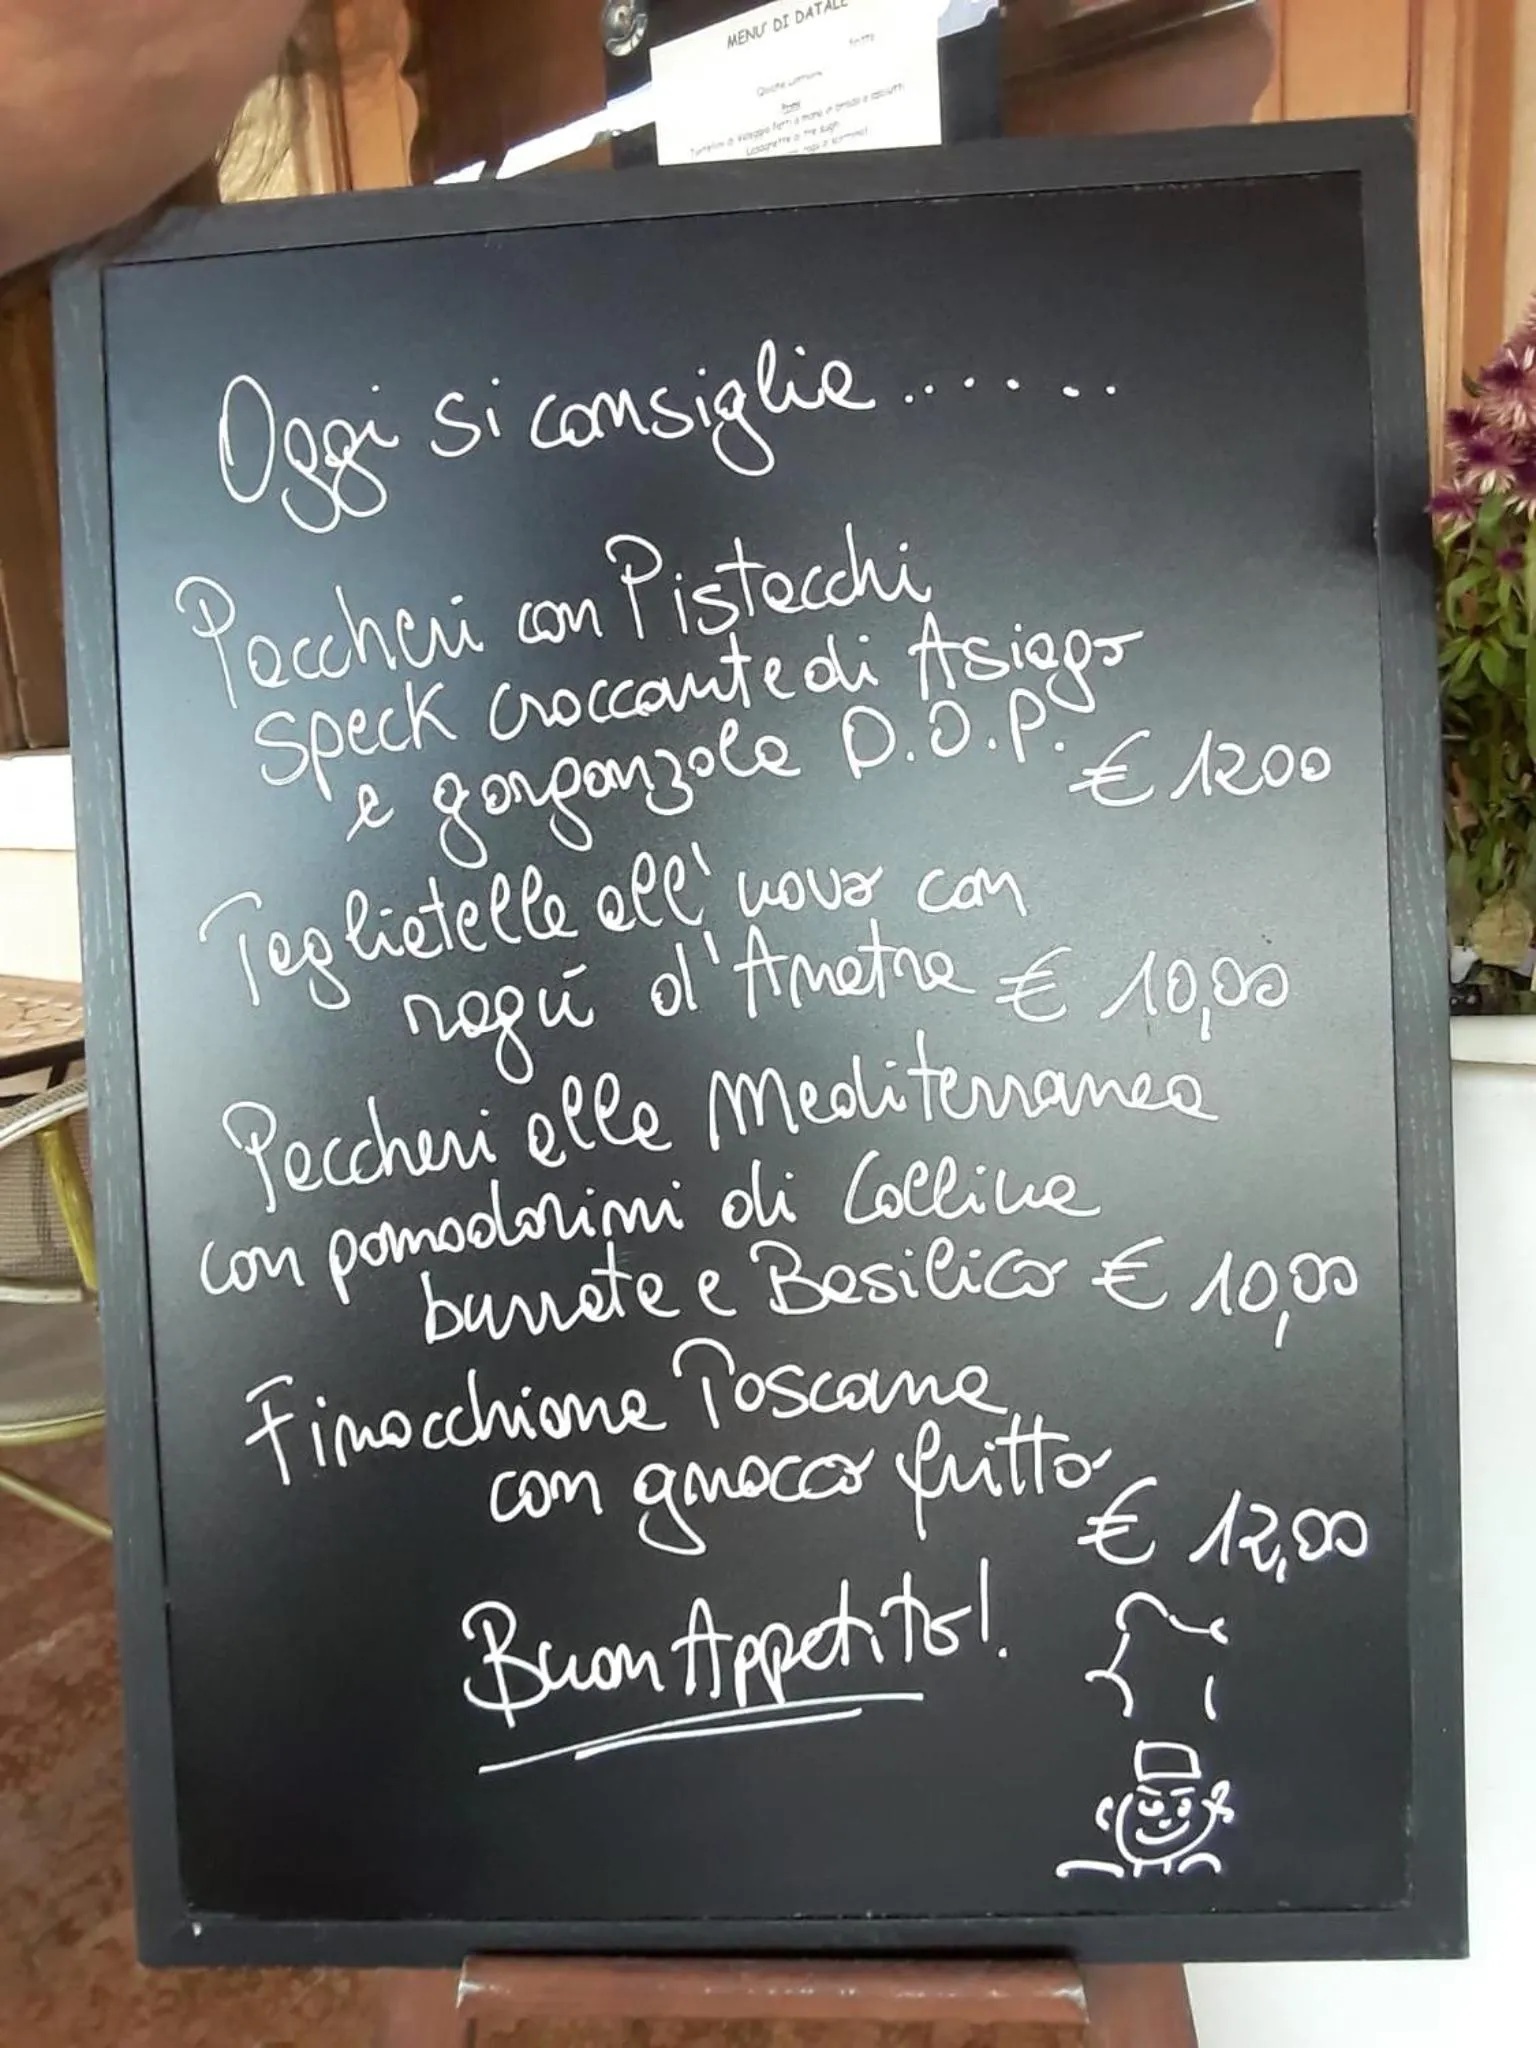 MENU' DI DATALE
Oggi si consiglia......
Paccheri con Pistacchi
speck croccante di Asiago
e gorgonzola D.O.P.
€ 1200
Tagliatelle all'uovo con
ragù d'Anatra € 10,00
Paccheri alla Mediterranea
con pomodorini di Collina
burrata e Basilico € 10,00
Finocchiona Toscana
con gnocco fritto
€ 12,00
Buon Appetito!